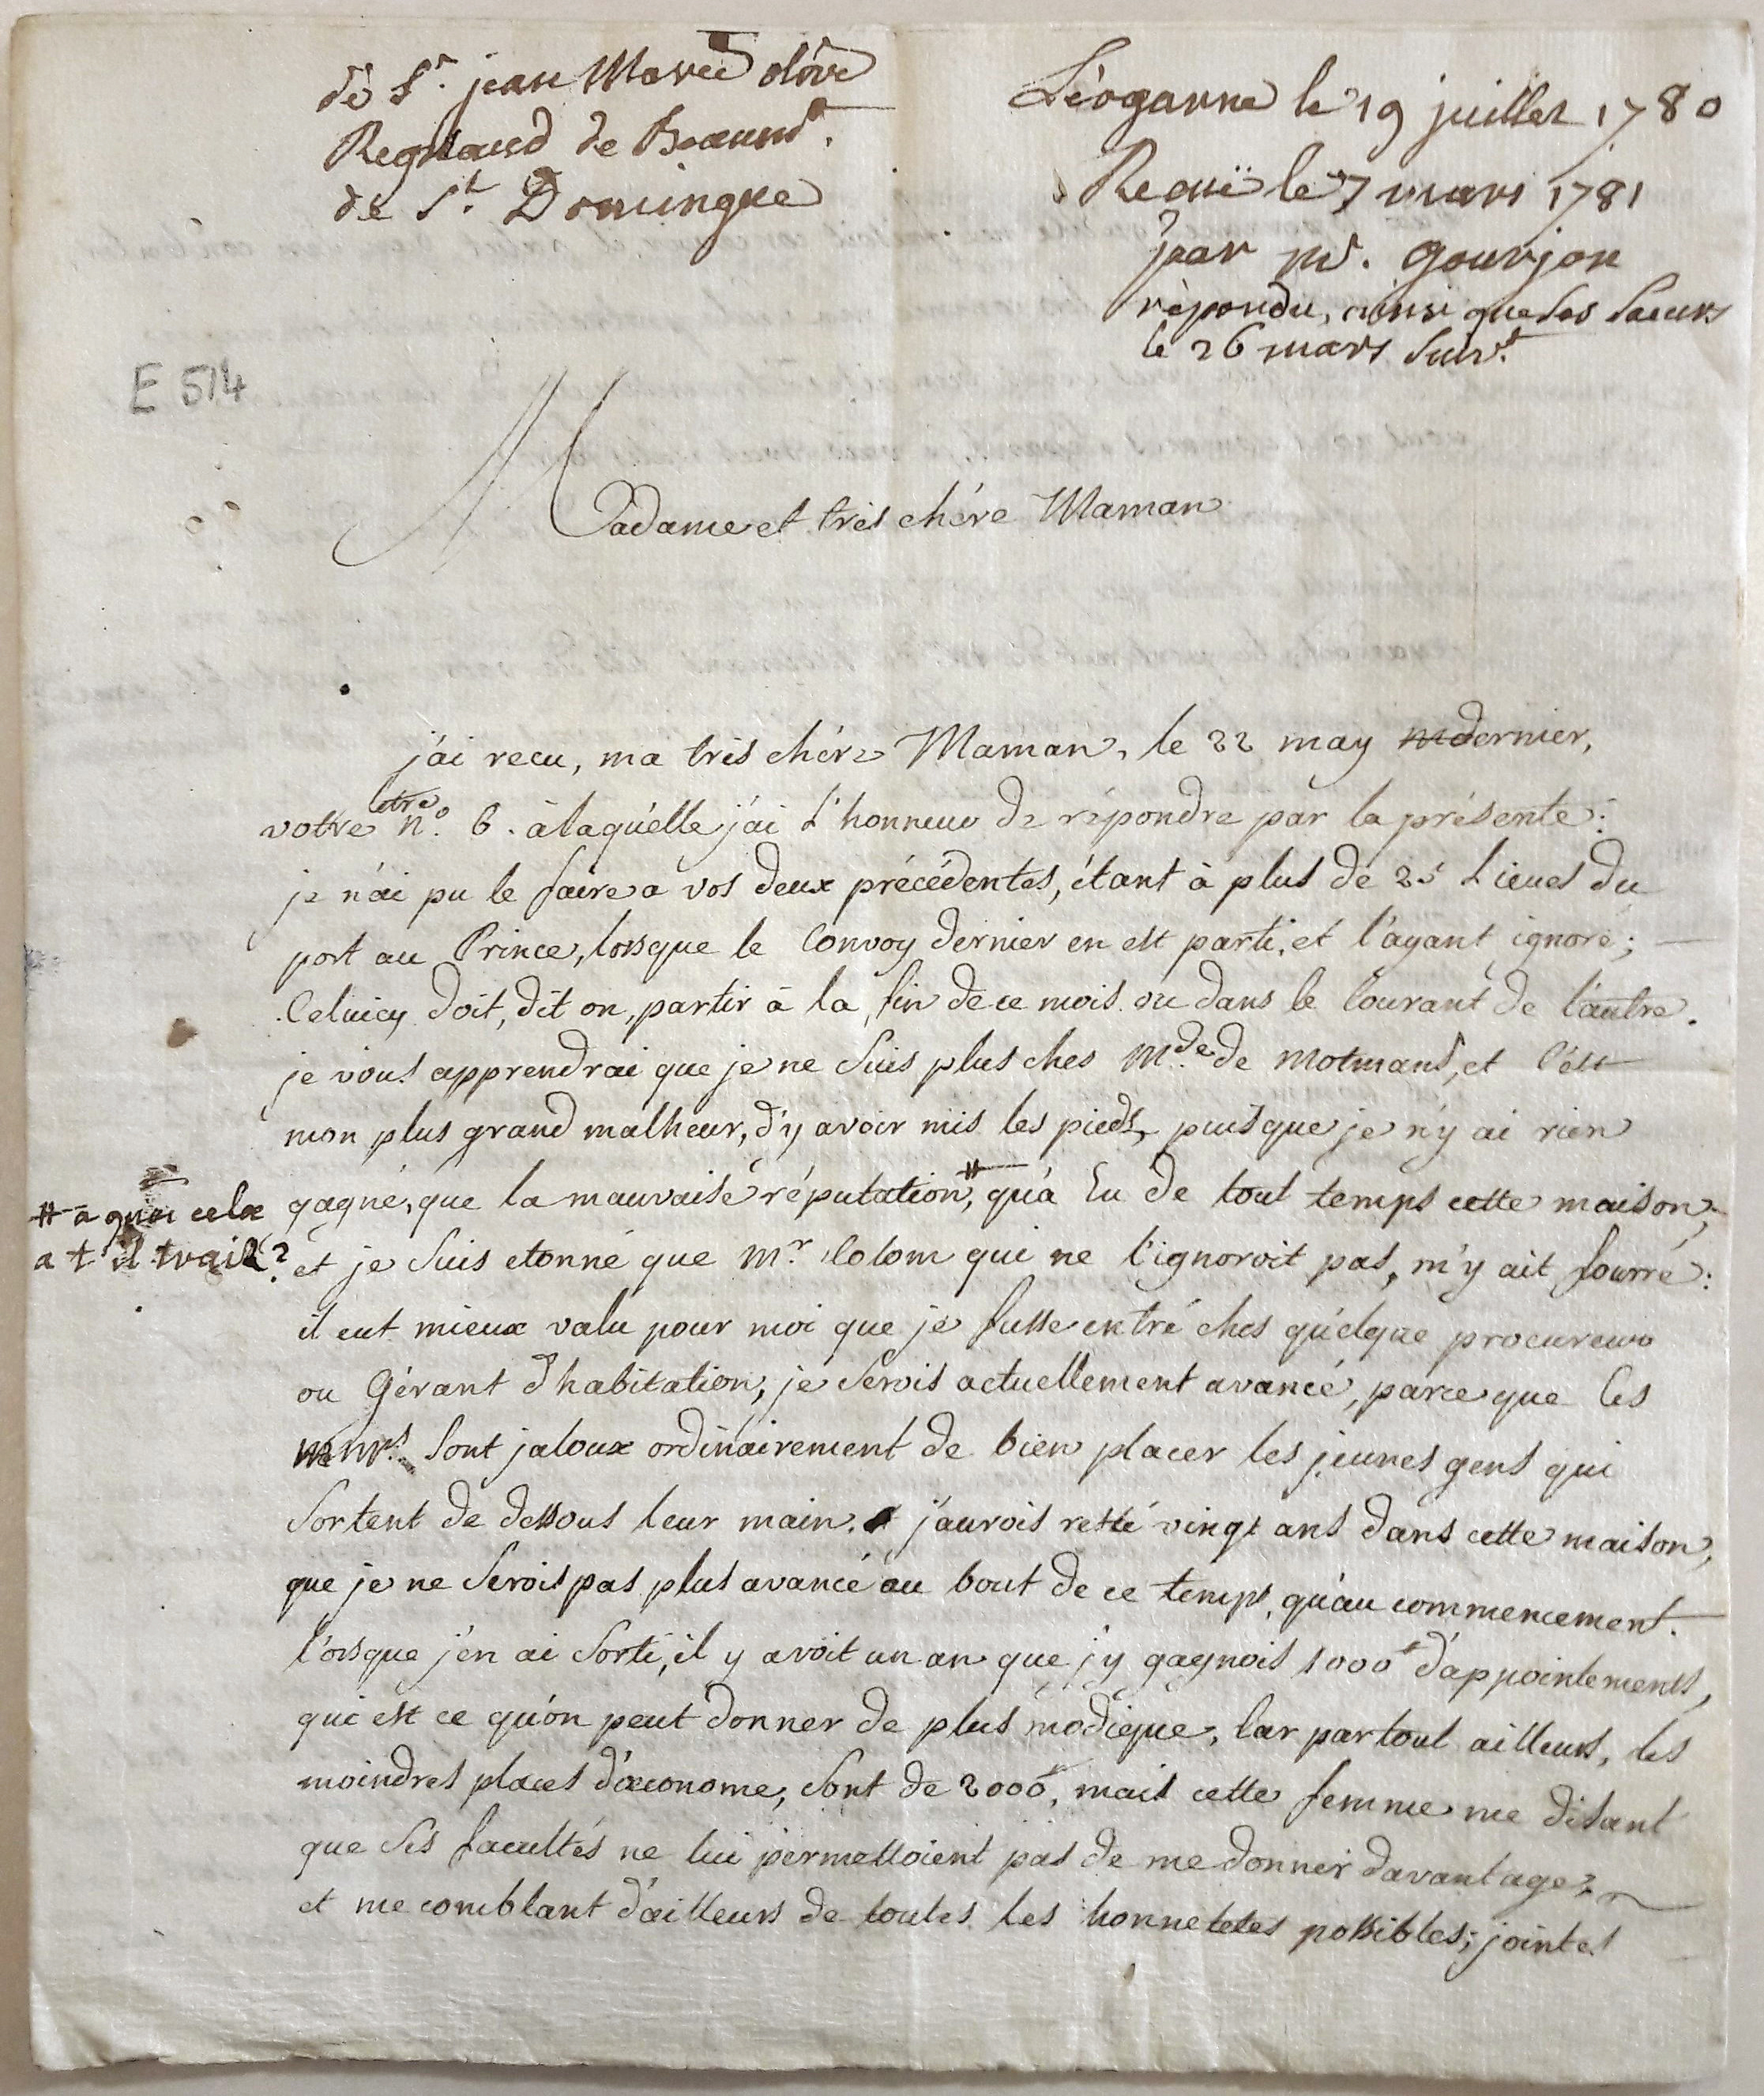 de Sr. jean Marie
Regnaud de Beaumt.
de St. Domingue
Léoganne le 19 juillet 1780
Recuë le 7 mars 1781
par mr. gourjon
répondu, ainsi que ses Sœurs
le 26 mars suivt.
E 514
Madame et très chére Maman
j'ai recu, ma très chére Maman, le 22 may dernier,
votre letre n.o 6. à laquélle j'ai L'honneur de répondre par la présente:
je n'ai pu le faire a vos deux précédentes, étant à plus de 25 Lieues du
port au Prince, lorsque le Convoy dernier en est parti, et l'ayant ignoré;
Celuicy doit, dit on, partir à la fin de ce mois ou dans le Courant de l'autre.
je vous apprendrai que je ne suis plus ches Mde. de Motmans, et C'est
mon plus grand malheur, d'y avoir mis les pieds, puisque je n'y ai rien
gagné, que la mauvaise réputation #, qu'a Eu de tout temps cette maison;
# a quoi cela
a t'il trait?
et je suis etonné que Mr. Colom qui ne l'ignoroit pas, m'y ait fourré:
il eut mieux valu pour moi que je fusse entré ches quélque procureur
ou Gérant d'habitation, je serois actuellement avancé, parce que Ces
mrs. sont jaloux ordinairement de bien placer les jeunes gens qui
sortent de dessous leur main. j'aurois resté vingt ans dans cette maison,
que je ne serois pas plus avancé au bout de ce temps, qu'au commencement.
l'orsque j'en ai sorti, il y avoit un an que j'y gagnois 1000# d'appointements,
qui est ce qu'on peut donner de plus modique, Car partout ailleurs, les
moindres places d'œconome, sont de 2000#, mais cette femme me disant
que ses facultés ne lui permettoient pas de me donner davantage,
et me comblant d'ailleurs de toutes les honnetetes possibles; jointes